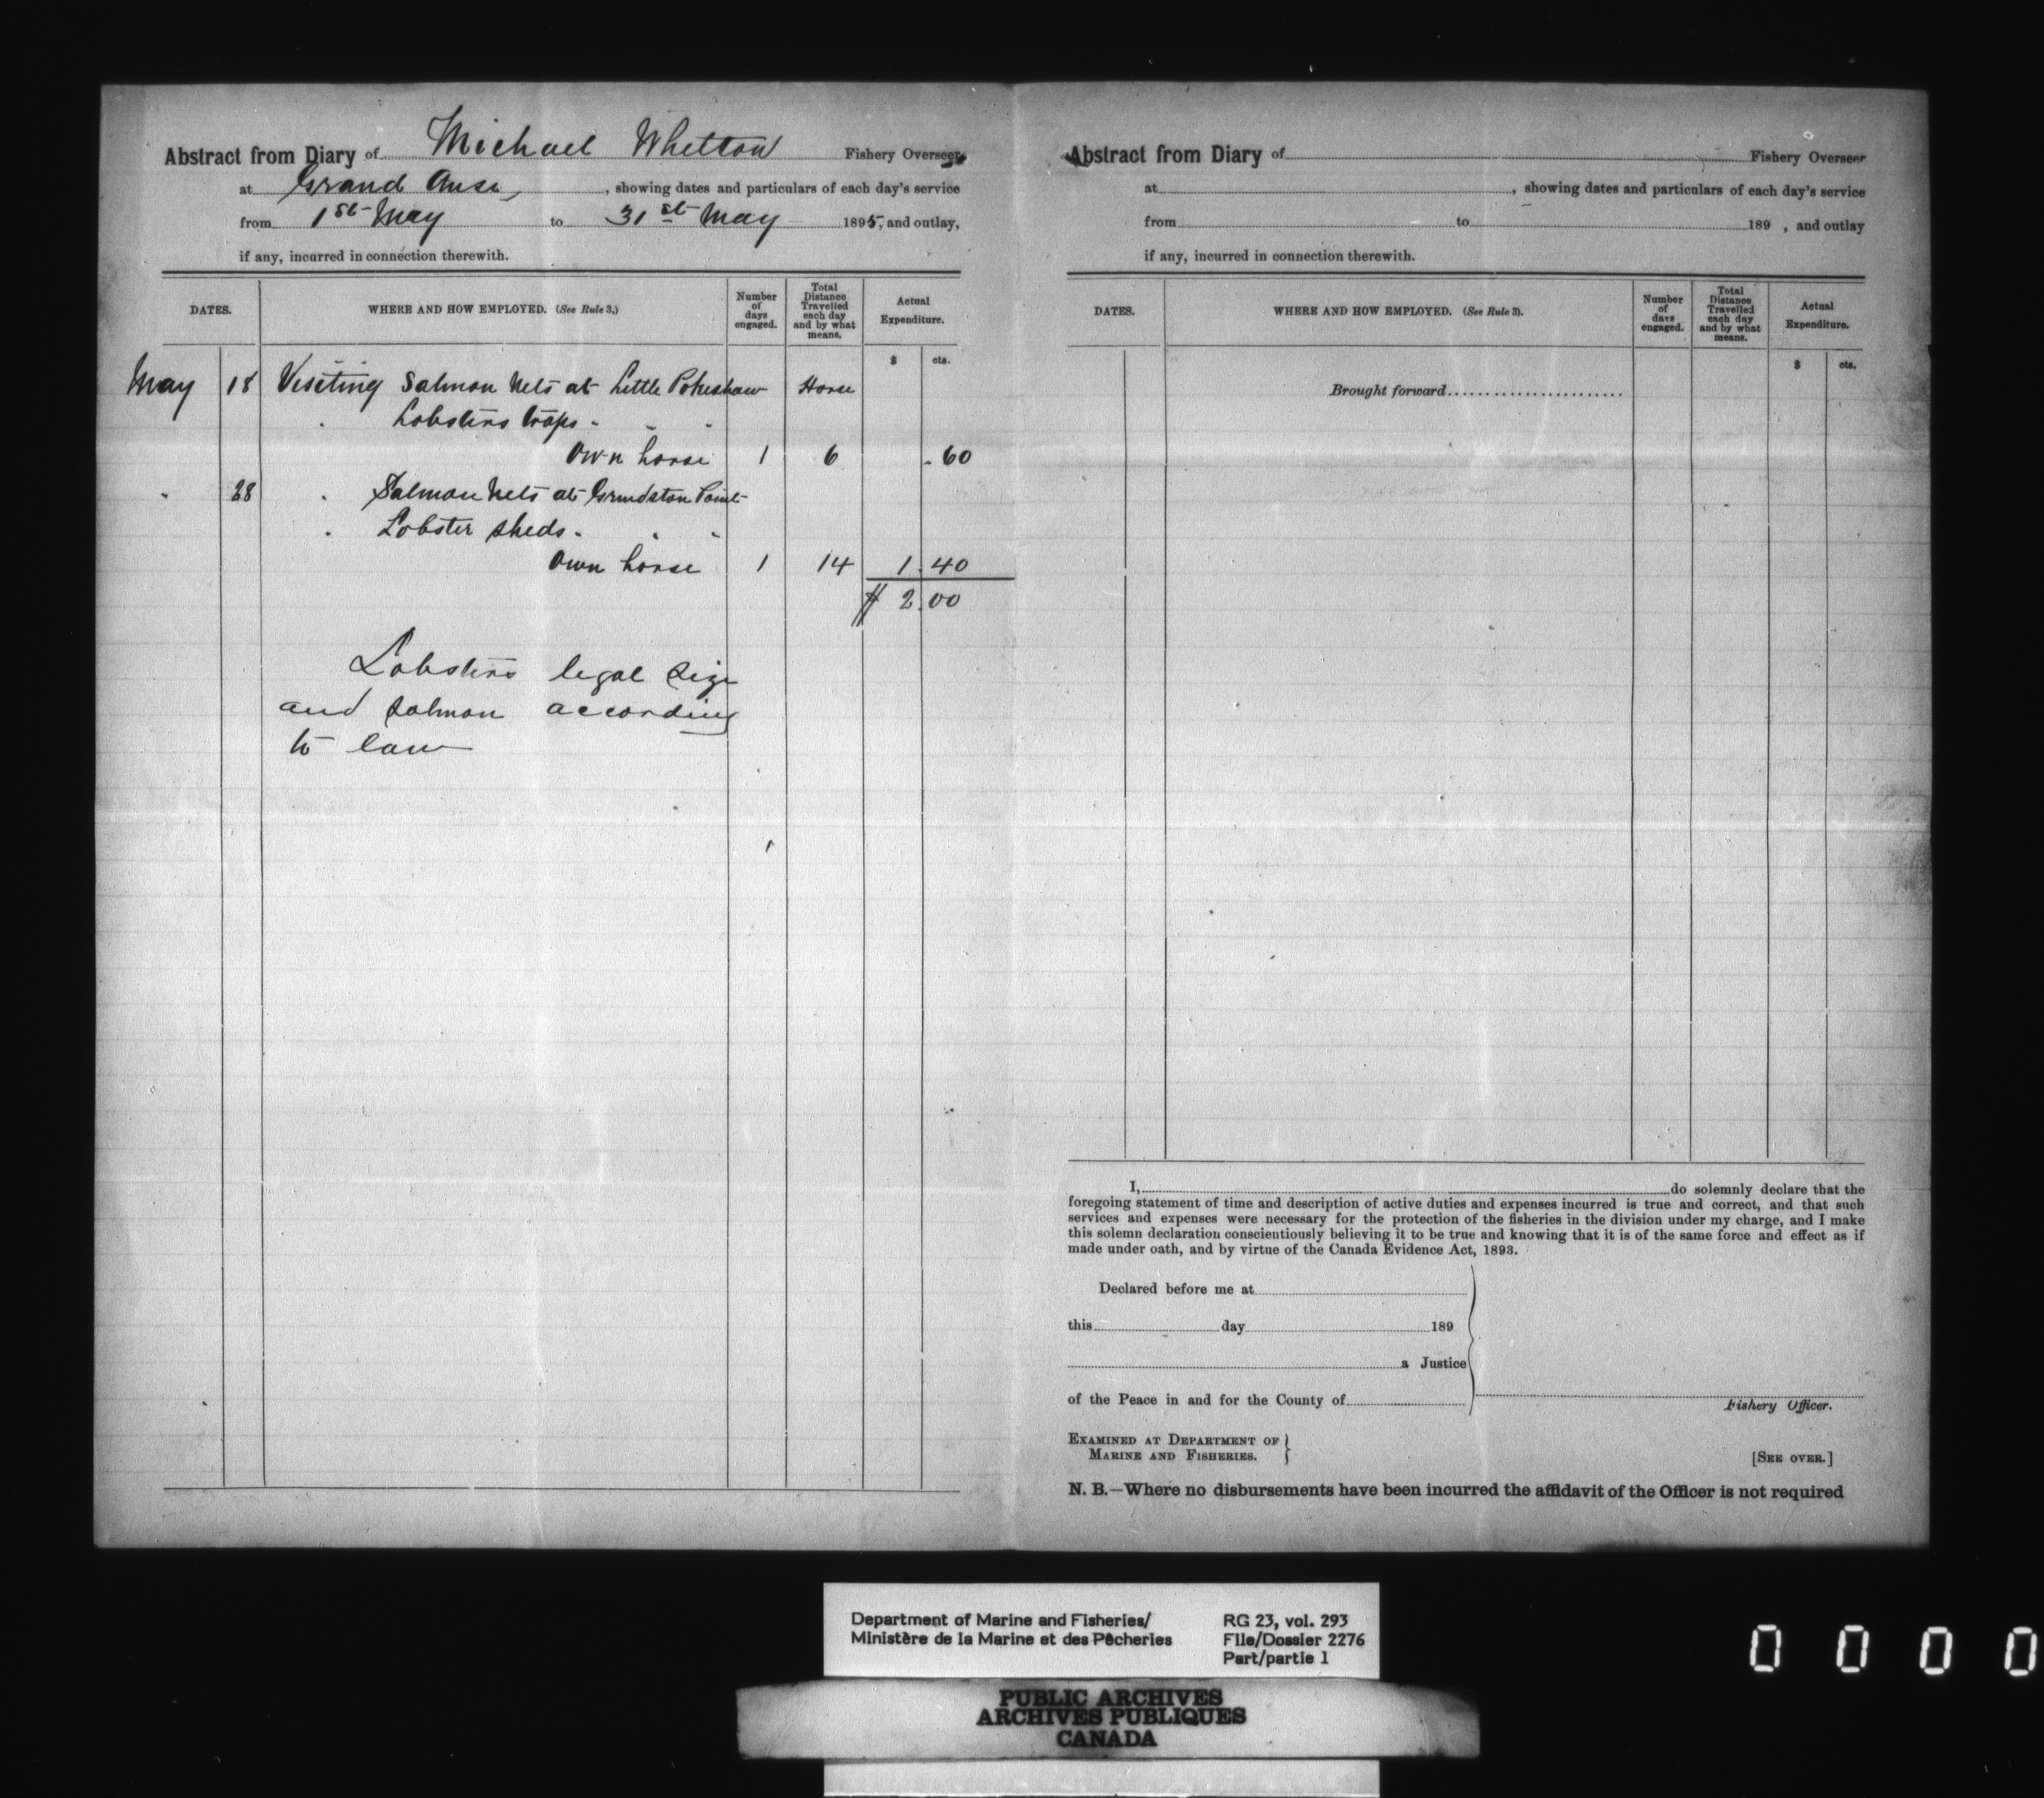 Abstract from Diary of Michael Whelton Fishery Overseer
at Grand Anse, , showing dates and particulars of each day's service
from 1st May to 31st May 1895, and outlay,
if any, incurred in connection therewith.
DATES. WHERE AND HOW EMPLOYED. (See Rule 3.) Number of days engaged. Total Distance Travelled each day and by what means. Actual Expenditure.
$ cts.
May 18 Visiting Salmon Nets at Little Pokeshaw Horse
" Lobsters traps " " "
Own horse 1 6 .60
" 28 " Salmon Nets at Grindston Point
" Lobster sheds " " "
Own horse 1 14 1.40
$ 2.00
Lobsters legal size
and salmon according
to law
Abstract from Diary of Fishery Overseer
at , showing dates and particulars of each day's service
from to 189 , and outlay
if any, incurred in connection therewith.
DATES. WHERE AND HOW EMPLOYED. (See Rule 3). Number of days engaged. Total Distance Travelled each day and by what means. Actual Expenditure.
$ cts.
Brought forward
I, do solemnly declare that the
foregoing statement of time and description of active duties and expenses incurred is true and correct, and that such
services and expenses were necessary for the protection of the fisheries in the division under my charge, and I make
this solemn declaration conscientiously believing it to be true and knowing that it is of the same force and effect as if
made under oath, and by virtue of the Canada Evidence Act, 1893.
Declared before me at
this day 189
a Justice
of the Peace in and for the County of
Fishery Officer.
EXAMINED AT DEPARTMENT OF
MARINE AND FISHERIES.
[SEE OVER.]
N. B.—Where no disbursements have been incurred the affidavit of the Officer is not required
Department of Marine and Fisheries/
Ministère de la Marine et des Pêcheries
RG 23, vol. 293
File/Dossier 2276
Part/partie 1
PUBLIC ARCHIVES
ARCHIVES PUBLIQUES
CANADA
0 0 0 0